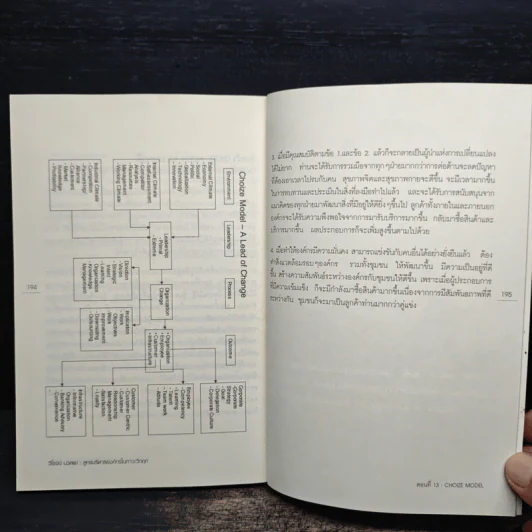 Choize Model – A Lead of Change
Environment
Leadership
Process
Outcome
External Climate
- Economy
- Social
- Public
- Globalization
- Technology
- Innovation
Internal Climate
- Self-assessment
- Competitor
Analysis
- Business
Management
- Working Climate
Industrial Climate
- Technology
- Competitor
- Customer
- Market
Knowledge
- Positioning
Leadership
- Personal
- External
Organization
Change
Direction
- Vision
- Strategic
Intent
- Learning
Organization
- Knowledge
Management
Implication
- Work
Objectives
- Work
Improvement
- Downsizing
- Outsourcing
- Organization
- Employee
- Customer
- Infrastructure
Corporate
- Corporate
Strategy
- Goal
- Delegation
- Corporate Culture
Employee
- Competency
- Learning
- Talent
- Team work
- Attitude
Customer
- Customer Centric
- Customer
Relationship
Management
- Satisfaction
- Loyalty
Infrastructure
- Informative
Organization
- Banking Advisory
- Convenience
194
3. เมื่อมีคุณสมบัติตามข้อ 1 และข้อ 2 แล้วก็จะกลายเป็นผู้นำแห่งการเปลี่ยนแปลง
ได้ไม่ยาก ท่านจะได้รับการร่วมมือจากทุกๆฝ่ายมากกว่าการต่อต้านจะลดปัญหา
ได้ยอมเวลาไปรบกับคน สุขภาพจิตและสุขภาพกายจะดีขึ้น จะมีเวลามากขึ้น
ในการทบทวนและประเมินในสิ่งที่ลงมือทำไปแล้ว และจะได้รับการสนับสนุนจาก
แนวคิดของทุกฝ่ายมาพัฒนาสิ่งที่มีอยู่ให้ดียิ่งๆขึ้นไป ลูกค้าทั้งภายในและภายนอก
องค์กรจะได้รับความพึงพอใจจากการมารับบริการมากขึ้น กลับมาซื้อสินค้าและ
บริการมากขึ้น ผลประกอบการก็จะเพิ่มสูงขึ้นตามไปด้วย
4. เมื่อทำให้องค์กรมีความมั่นคง สามารถแข่งขันกับคนอื่นได้อย่างยั่งยืนแล้ว ต้อง
ทำสิ่งแวดล้อมรอบๆองค์กร รวมทั้งชุมชน ให้พัฒนาขึ้น มีความเป็นอยู่ที่ดี
ขึ้น สร้างความสัมพันธ์ระหว่างองค์กรกับชุมชนให้ดีขึ้น เพราะเมื่อผู้ประกอบการ
มีความเข้มแข็ง ก็จะมีกำลังมาซื้อสินค้ามากขึ้นเนื่องจากการมีสัมพันธภาพที่ดี
ระหว่างกัน ชุมชนก็จะมาเป็นลูกค้าท่านมากกว่าคู่แข่ง
195
ตอนที่ 13 : CHOIZE MODEL